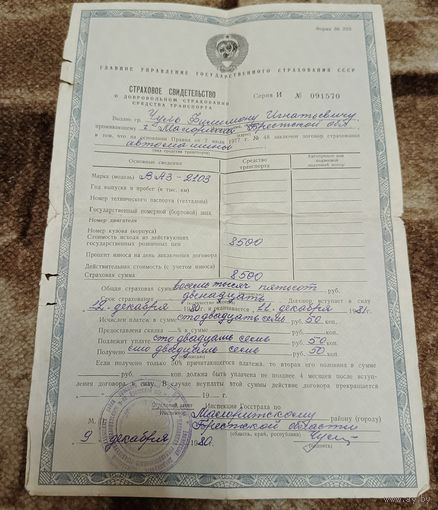 Форма № 203
ГЛАВНОЕ УПРАВЛЕНИЕ ГОСУДАРСТВЕННОГО СТРАХОВАНИЯ СССР
СТРАХОВОЕ СВИДЕТЕЛЬСТВО
О ДОБРОВОЛЬНОМ СТРАХОВАНИИ
СРЕДСТВА ТРАНСПОРТА
Серия И № 091570
Выдано гр. Игнатьевичу
проживающему г. Брестской обл.
в том, что на основании Правил от 7 июля 1977 г. № 48 заключен договор страхования
автомашины
(вид средства транспорта)
Основные сведения
Средство транспорта
Марка (модель) ВАЗ-2103
Год выпуска и пробег (в тыс. км)
Номер технического паспорта (техталона)
Государственный номерной (бортовой) знак
Номер двигателя
Номер кузова (корпуса)
Стоимость исходя из действующих
государственных розничных цен 8500
Процент износа на день заключения договора
Действительная стоимость (с учетом износа)
Страховая сумма 8500
Общая страховая сумма восемь тысяч пятьсот руб.
Срок страхования двенадцать Договор вступит в силу
12 декабря 1980 г. и оканчивается 11 декабря 1981 г.
Исчислен платеж в сумме сто двадцать семь руб. 50 коп.
Предоставлена скидка % в сумме руб. коп.
Подлежит уплате сто двадцать семь руб. 50 коп.
Получено сто двадцать семь руб. 50 коп.
Если получено только 50% причитающегося платежа, то вторая его половина в сумме
руб. коп. должна быть уплачена не позднее 4 месяцев после вступ-
ления договора в силу. В случае неуплаты этой суммы действие договора прекращается
19 г.
М. Инспекция Госстраха по
району (городу)
Брестской области
(область, край, республика)
(подпись)
9 декабря 1980.
ay.by